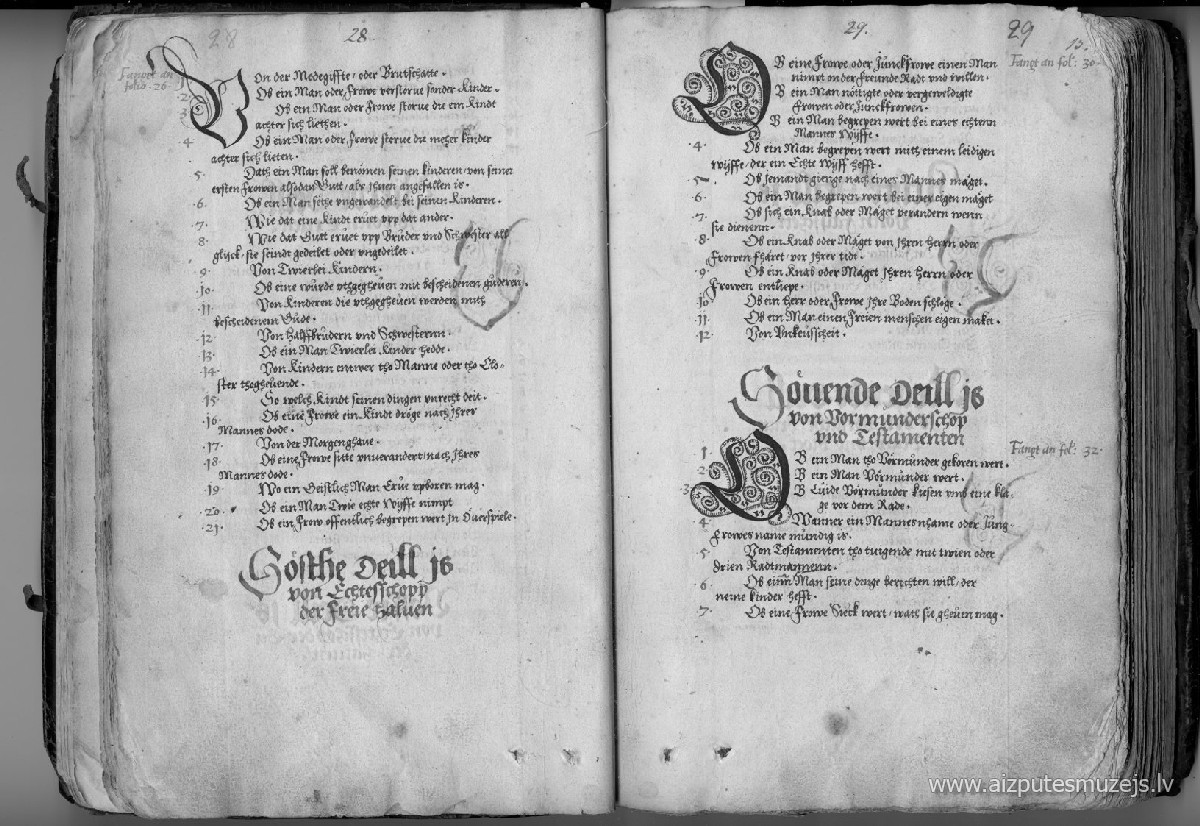 28
28.
Fanget an
folio 26.
Von der Medegiffte, oder Brutschatte.
2. Ob ein Man oder Frowe verstorue sonder Kinder.
3. Ob ein Man oder Frowe storue die ein Kindt
achter sich liethen.
4. Ob ein Man oder Frowe storue die meher kinder
achter sich lieten.
5. Dath ein Man soll benömen seinen kinderen, von seiner
ersten Frowen alsodan Gutt, als ihnen angefallen is.
6. Ob ein Man sitze vngewandelt bei seinen Kinderen.
7. Wie dat eine Kindt eruet vpp dat ander.
8. Wie dat Gutt eruet vpp Brüder vnd Schwester all
glyck, sie seindt gedeilet oder vngedeilet.
9. Von Twierlei Kindern.
10. Ob eine würde vthgegheuen mit bescheidenen güderen.
11. Von Kinderen die vthgegheuen werden mith
bescheidenem Gude.
12. Von Halffbrüdern vnd Schwesternn.
13. Ob ein Man Twierlei Kinder hedde.
14. Von Kindern entwer tho Manne oder tho Clo-
ster thogheuende.
15. So welch Kindt seinen dingen vnrecht deit.
16. Ob eine Frowe ein Kindt dröge nach ihrer
Mannes dode.
17. Von der Morgenghaue.
18. Ob eine Frowe sitte vnuerandert, nach ihres
Mannes dode.
19. Wo ein Geistlich Man Erue vpboren mag.
20. Ob ein Man Twie echte Wyffe nimpt
21. Ob ein Frow offentlich begrepen wert in Ouerspiele.
Sösthe Deill is
von Echtesschopp
der Freie haluen
29.
29
15.
Fangt an fol: 30.
OB eine Frowe oder Junckfrowe einen Man
nimpt onder Freunde Radt vnd willen.
B ein Man nöttigte oder vergeweldigte
Frowen oder Junckfrowen.
B ein Man begrepen wert bei eines echtenn
Mannes Wyffe.
4. Ob ein Man begrepen wert mith einem leidigen
wyffe, der ein Echte Wyff hefft.
5. Ob jemandt gienge nach eines Mannes mäget.
6. Ob ein Man begrepen wert bei einer eigen mäget
7. Ob sich ein Knab oder Mäget verandern wenn
sie dienenn.
8. Ob ein Knab oder Mäget von ihren herrn oder
Frowen fharet vor ihrer tidt.
9. Ob ein Knab oder Mäget ihren herrn oder
Frowen entliepe.
10. Ob ein Herr oder Frowe ihre Boden schloge.
11. Ob ein Man einen Freien menschen eigen maket.
12. Von Vnkeusscheit.
Söuende Deill is
von Vormünderschop
vnd Testamenten
Fangt an fol: 32.
1. OB ein Man tho Vörmünder gekoren wert.
2. B ein Man Vörmünder wert.
3. B Luide Vörmünder kiesen vmb eine kla-
ge vor dem Rade.
4. Wanner ein Mannesnhame oder Jung-
frowes name mündig is.
5. Von Testamenten tho tuigende mit twien oder
drien Radtmannenn.
6. Ob einn Man seine dinge berichten will, der
neine kinder hefft.
7. Ob eine Frowe Sieck wert, wath sie gheuen mag.
www.aizputesmuzejs.lv